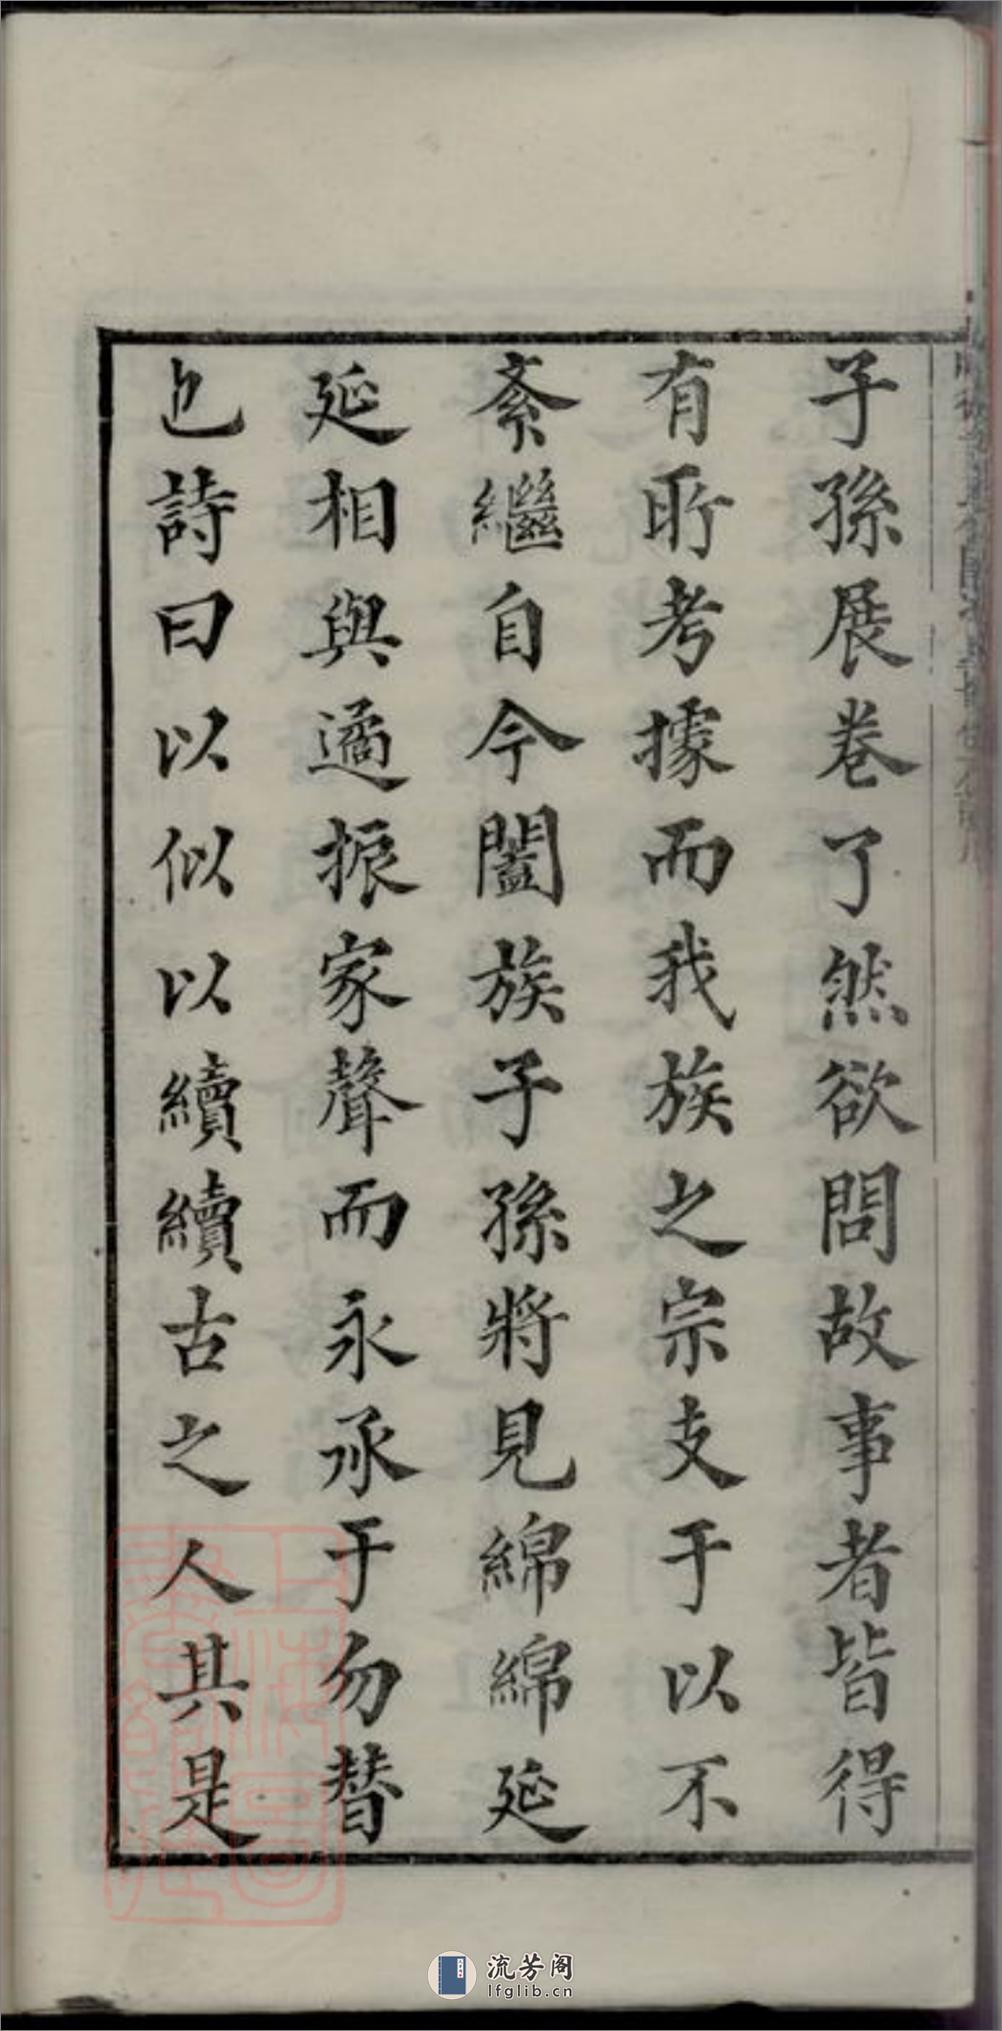 子孫展卷了然欲問故事者皆得
有所考據而我族之宗支于以不
紊繼自今闔族子孫將見綿綿延
延相與遹振家聲而永承于勿替
也詩曰以似以續續古之人其是
上海圖
書館藏
流芳阁
lfglib.cn